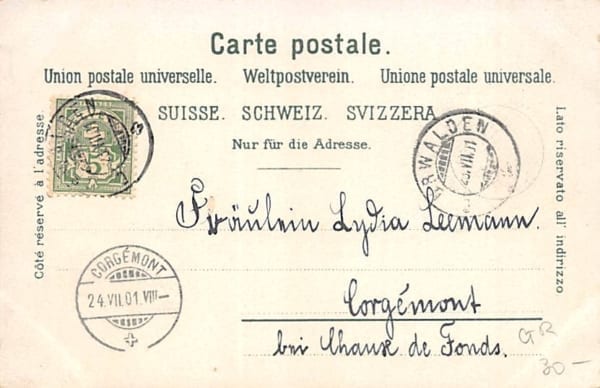 Carte postale.
Union postale universelle. Weltpostverein. Unione postale universale.
SUISSE. SCHWEIZ. SVIZZERA.
Nur für die Adresse.
Côté réservé à l'adresse.
Lato riservato all' indirizzo
5
RWALDEN
Fräulein Lydia Leemann.
CORGÉMONT
24.VII.01.VIII—
Corgémont
bei Chaux de Fonds.
GR
30-